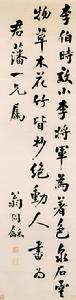 李伯時效小李將軍為著色泉石雲
物草木花竹皆妙絕動人書為
君藩一兄屬
翁同龢